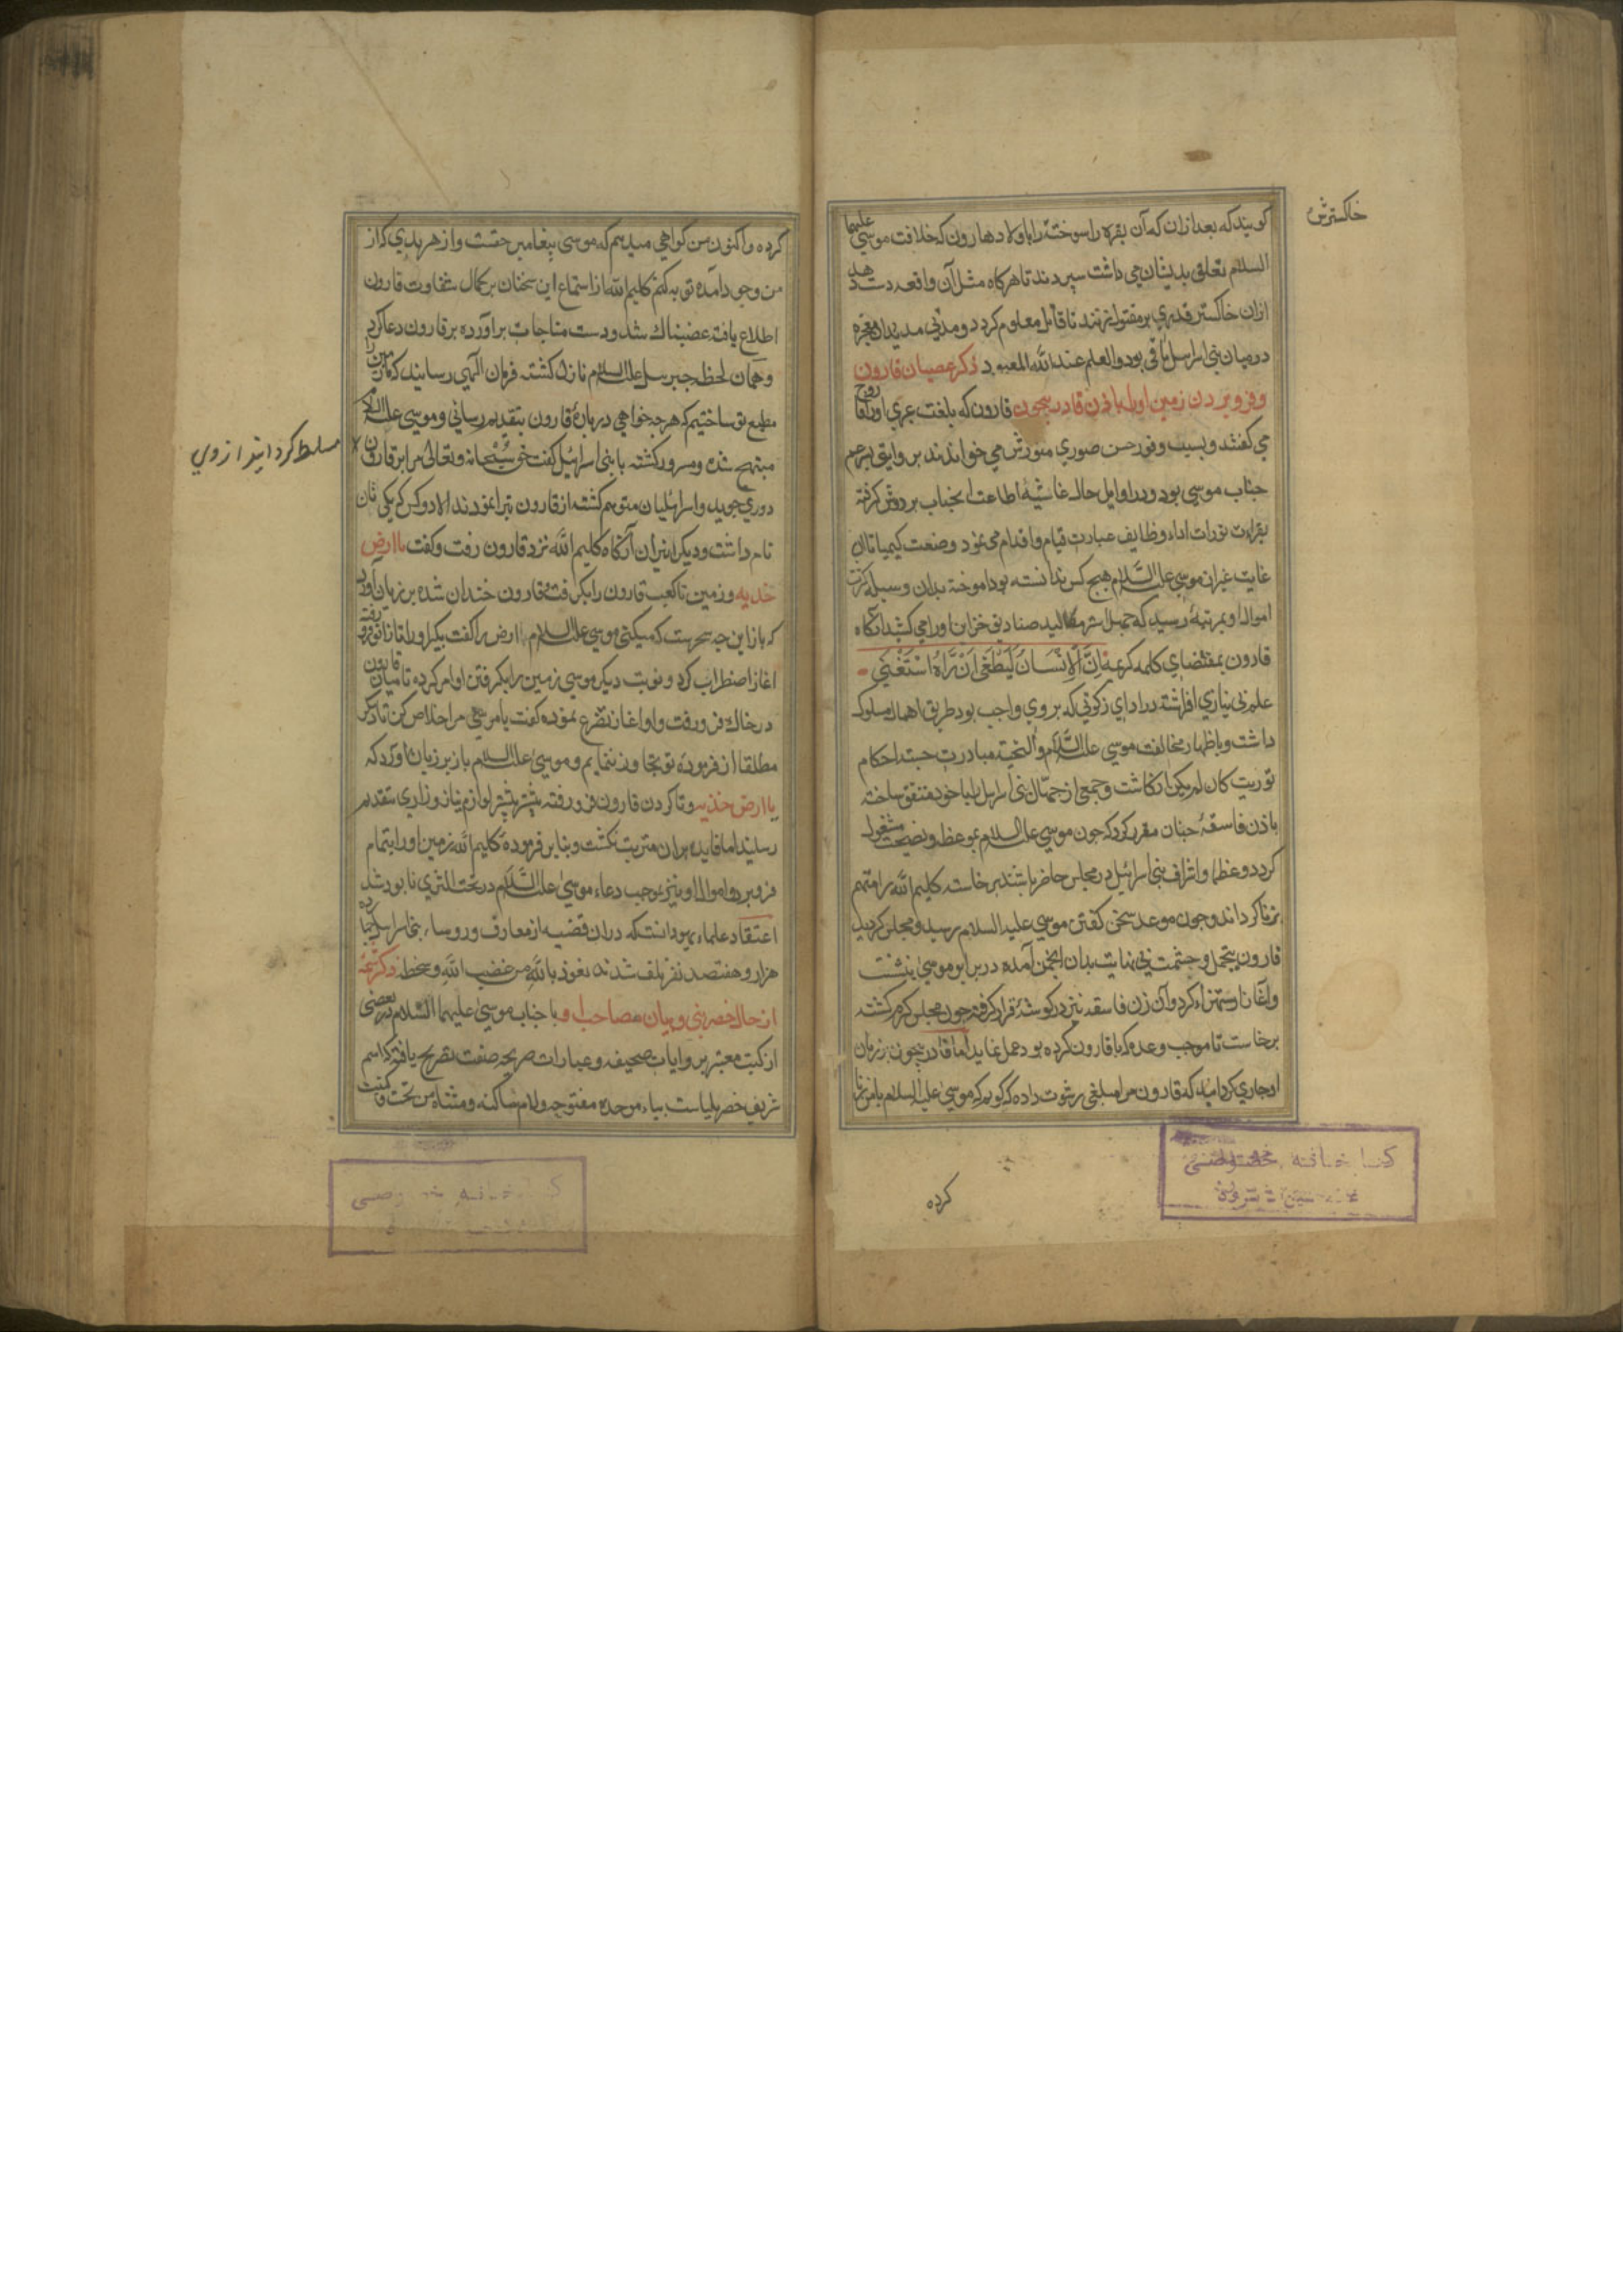 خاکسترش
کویند که بعد ازان که آن بقره را سوختند را باولاد هارون که خلافت موسی علیهما
السلام تعلق بدیشان می داشت سپردند تا هرکاه مثل آن واقعه دست دهد
ازان خاکستر قدری بر مقتول ریزند تا قاتل معلوم کردد و مدتی مدید ان معجزه
درمیان بنی اسراییل باقی بود والعلم عند الله المعبود ذکر عصیان قارون
وفرو بردن زمین اورا باذن قادر بیچون قارون که بلغت عبری اورا قا روح
می کفتند و بسبب وفور حسن صوری منورش می خواندند بروایتی پسر عم
جناب موسی بود ودر اوایل حال غاشیهٔ اطاعت انجناب بر دوش کرفته
بقراءت تورات اداء وظایف عبارت قیام واقدام می نمود وصنعت کیمیا تا ان
غایت غیر از موسی علیه السلام هیچ کس ندانسته بود اموخته بدان وسیله کثرت
اموال او بمرتبهٔ رسید که چهل استر مقالید صنادیق خزاین اورا می کشید انکاه
قارون بمقتضای کلمه کریمه اِنَّ الْاِنْسَانَ لَیَطْغٰی اَنْ رَّاٰهُ اسْتَغْنٰی
علم بی نیازی افراشته در ادای زکوتی که بر وی واجب بود طریق اهمال مسلوک
داشت وباظهار مخالفت موسی علیه السلام والتحیه مبادرت جسته احکام
توریت کان لم یکن انکاشت وجمعی از جهّال بنی اسراییل را با خود متفق ساخته
با زن فاسقهٔ چنان مقرر کرد که چون موسی علیه السلام بوعظ ونصیحت مشغول
کردد وعظما واشراف بنی اسرائیل در مجلس حاضر باشند برخاسته کلیم الله را متهم
بزنا کرداند وچون موعد سخن کفتن موسی علیه السلام رسید ومجلس کردید
قارون بتجمل وحشمت بی نهایت بدان انجمن آمده در برابر موسی بنشست
وآغاز استهزاء کرد وآن زن فاسقه نیز در کوشهٔ قرار کرفته چون مجلس کرم کشته
برخاست تا بموجب وعده که با قارون کرده بود عمل نماید اما قادر بیچون بر زبان
او جاری کردانید که قارون مرا مبلغی رشوت داده که کویم که موسی علیه السلام با من زنا
کرده
کرده واکنون من کواهی میدهم که موسی پیغامبر حقست واز هر بدی که از
من وجود آمده توبه کنم کلیم الله از استماع این سخنان بر کمال شقاوت قارون
اطلاع یافته غضبناک شد ودست مناجات برآورده بر قارون دعا کرد
وهمان لحظه جبرییل علیه السلام نازل کشته فرمان الهی رسانید که ما زمین را
مطیع تو ساختیم که هرچه خواهی در بارهٔ قارون بتقدیم رسانی وموسی علیه السلام
مبتهج شده ومسرور کشته با بنی اسرائیل کفت حق سُبْحانه وتعالی مرا بر قارون
مسلط کردانید از وی
دوری جویید واسرائیلیان متوهم کشته از قارون تبرا نمودند الا دو کس که یکی ثان
نام داشت ودیکر ابیران آنکاه کلیم الله نزد قارون رفت وکفت یا ارض
خذیه وزمین تا کعب قارون را بکرفت وقارون خندان شده بر زبان آورد
که باز این چه سحرست که میکنی موسی علیه السلام ارض را کفت بکیر اورا تا زانو فرو رفته
اغاز اضطراب کرد ونوبت دیکر موسی زمین را بکرفتن او امر کرده تا میان قارون
در خاک فرو رفت واو اغاز تضرع نموده کفت یا موسی مرا خلاص کن تا دیکر
مطلقا از فرموده تو تجاوز ننمایم وموسی علیه السلام باز بر زبان آورد که
یا ارض خذیه وتا کردن قارون فرو رفته بیشتر پیشتر لوازم نیاز وزاری بتقدیم
رسانید اما فایده بران مترتب نکشت وبنا بر فرمودهٔ کلیم الله زمین اورا بتمام
فرو برد واموال او نیز بموجب دعاء موسی علیه السلام در تحت الثری نابود شد
اعتقاد علماء یهود انست که دران قضیه از معارف وروساء بنی اسراییل
هزار وهفتصد نفر تلف شدند نعوذ بالله من غضب الله وسخطه ذکر شمهٔ
از حال خضر نبی وبیان مصاحبت او با جناب موسی علیهما السلام در بعضی
از کتب معتبر بروایات صحیفه وعبارات صریحه صفت تصریح یافته که اسم
شریف خضر بلیاست بباء موحده مفتوحه ولام ساکنه ومثناه من تحت وکنیت